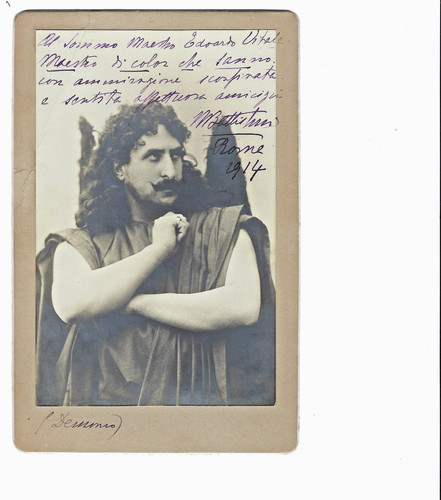 Al Sommo Maestro Edoardo Vitale
Maestro di color che sanno.
con ammirazione sconfinata
e sentita affettuosa amicizia
MBattistini
Rome
1914
(Demonio)